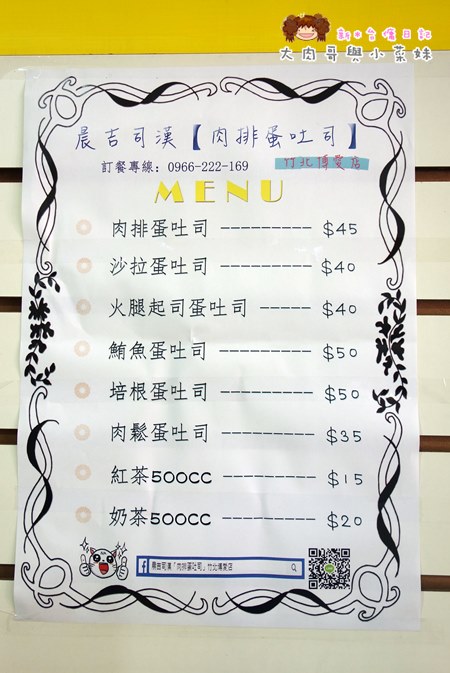 新竹食攝日記
大肉哥與小菜妹
晨吉司漢【肉排蛋吐司】
訂餐專線：0966-222-169
竹北博愛店
MENU
肉排蛋吐司 --------- $45
沙拉蛋吐司 --------- $40
火腿起司蛋吐司 ----- $40
鮪魚蛋吐司 --------- $50
培根蛋吐司 --------- $50
肉鬆蛋吐司 --------- $35
紅茶500CC --------- $15
奶茶500CC --------- $20
晨吉司漢「肉排蛋吐司」竹北博愛店